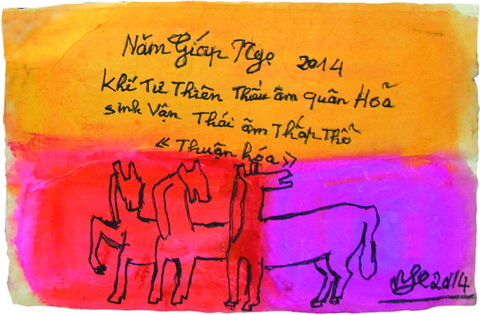 Năm Giáp Ngọ 2014
Khí Tư Thiên Thiếu âm quân Hoả
sinh Vận Thái âm Thấp Thổ
« Thuận hóa »
2014